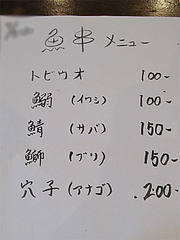 魚串 メニュー
トビウオ 100-
鰯 (イワシ) 100-
鯖 (サバ) 150-
鰤 (ブリ) 150-
穴子 (アナゴ) .200-